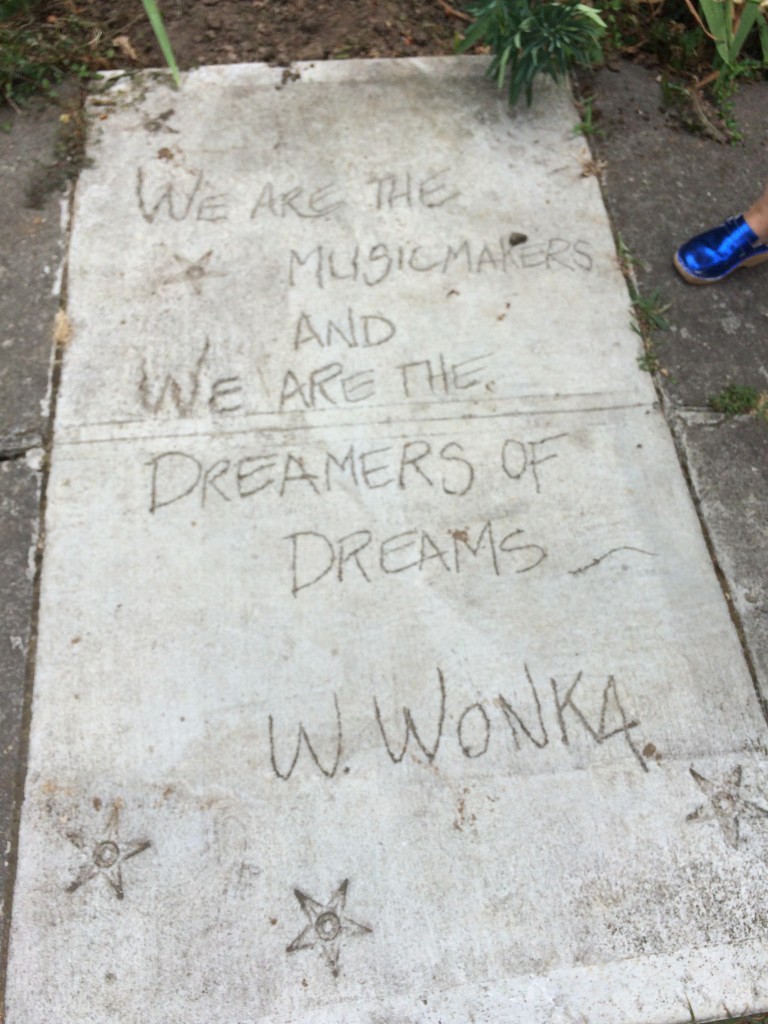 WE ARE THE
MUSICMAKERS
AND
WE ARE THE
DREAMERS OF
DREAMS ~
W. WONKA.